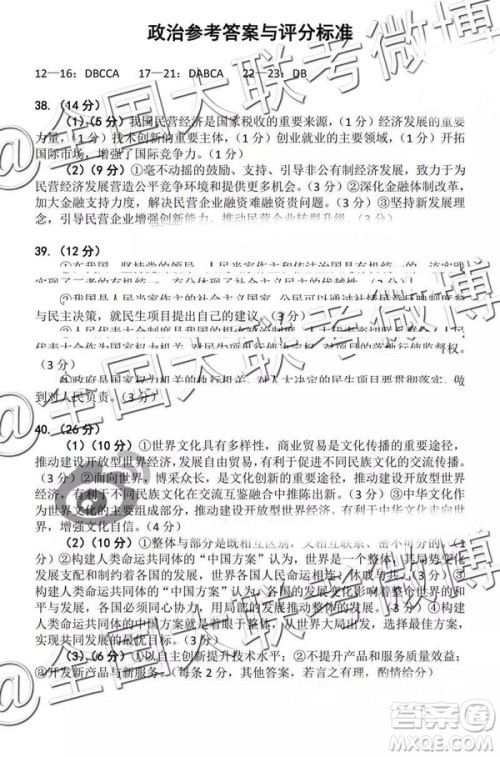 政治参考答案与评分标准
12—16：DBCCA 17—21：DABCA 22—23：DB
38.（14 分）
（1）（5 分）我国民营经济是国家税收的重要来源，（1 分）经济发展的重要
力量，（1 分）技术创新的重要主体，（1 分）创业就业的主要领域，（1 分）开拓
国际市场，增强了国际竞争力。（1 分）
（2）（9 分）①毫不动摇的鼓励、支持、引导非公有制经济发展，致力于为
民营经济发展营造公平竞争环境和提供更多机会。（3 分）②深化金融体制改革，
加大金融支持力度，解决民营企业融资难融资贵问题。（3 分）③坚持新发展理念，
引导民营企业增强创新能力，推动民营企业转型升级。（3 分）
39.（12 分）
①在我国，坚持党的领导、人民当家作主和依法治国是有机统一的，
实现了三者的有机统一，充分体现了社会主义民主的优越性。（3 分）
②我国是人民当家作主的社会主义国家，公民可以通过社情民意
与民主决策，就民生项目提出自己的建议。（3 分）
③人民代表大会制度是我国的根本政治制度，
代表大会
权。
（3 分）
④政府是国家权力机关的执行机关，对人大决定的民生项目要贯彻落实，做
到对人民负责。（3 分）
40.（26 分）
（1）（10 分）①世界文化具有多样性，商业贸易是文化传播的重要途径，
推动建设开放型世界经济，发展国际贸易，有利于促进不同民族文化的传播。
（3 分）②面向世界，博采众长，是一个国家文化发展的重要途径，推动建设开
放型世界经济，有利于不同民族文化在交流互鉴融合中推动。（3 分）③中华文化作
为世界文化的主要组成部分，推动建设开放型世界经济有利于中华文化走向世界，
增强文化自信。（4 分）
（2）（10 分）①整体与部分是既相互区别，又相互联系、密不可分的。（1
分）②构建人类命运共同体的“中国方案”认为，世界是一个整体，其局势变化
支配和制约着各国的发展，世界各国人民命运相连、休戚与共。（3 分）③构建人
类命运共同体的“中国方案”认为，各国是世界的部分，各国发展影响世界的和
平与发展，各国必须同心协力，用局部的发展推动世界发展。（3 分）④构建
人类命运共同体的“中国方案”，从世界大局出发，选择最佳方案，
实现共同发展的最优目标。（3 分）
（3）（6 分）①以自主创新提升技术水平；②不提升产品和服务质量；③
④开发新产品与新服务。（每条 2 分，其他答案，若有道理，酌情给分）
@全国大联考微博
答案圈
MXQE.COM